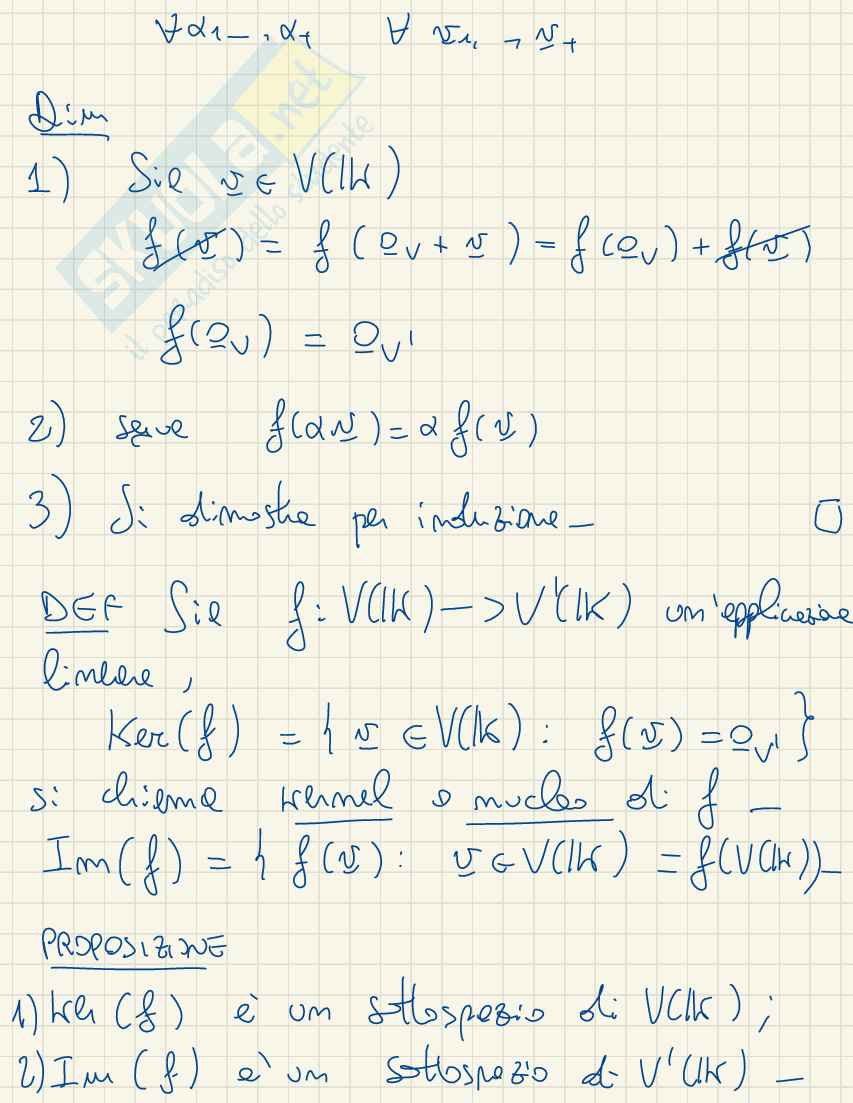 ∀α1 –, αt ∀ v1, –, vt
Dim
1) Sia v ∈ V(IK)
f(v) = f(0V + v) = f(0V) + f(v)
f(0V) = 0V'
2) segue f(αv) = α f(v)
3) Si dimostra per induzione – □
DEF Sia f: V(IK) –> V'(IK) un'applicazione
lineare,
Ker(f) = { v ∈ V(IK): f(v) = 0V' }
si chiama kernel o nucleo di f –
Im(f) = { f(v): v ∈ V(IK) = f(V(IK)) –
PROPOSIZIONE
1) Ker(f) è un sottospazio di V(IK);
2) Im(f) è un sottospazio di V'(IK) –
SKUOLA.net
il paradiso dello studente